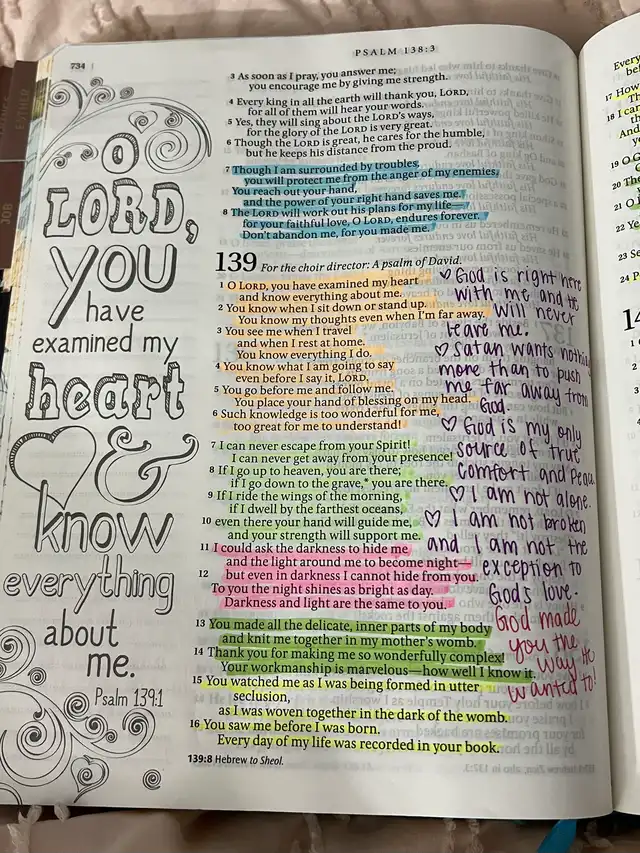 PSALM 138:3
734
3 As soon as I pray, you answer me;
you encourage me by giving me strength.
4 Every king in all the earth will thank you, LORD,
for all of them will hear your words.
5 Yes, they will sing about the LORD's ways,
for the glory of the LORD is very great.
6 Though the LORD is great, he cares for the humble,
but he keeps his distance from the proud.
7 Though I am surrounded by troubles,
you will protect me from the anger of my enemies.
You reach out your hand,
and the power of your right hand saves me.
8 The LORD will work out his plans for my life—
for your faithful love, O LORD, endures forever.
Don't abandon me, for you made me.
139 For the choir director: A psalm of David.
1 O LORD, you have examined my heart
and know everything about me.
2 You know when I sit down or stand up.
You know my thoughts even when I'm far away.
3 You see me when I travel
and when I rest at home.
You know everything I do.
4 You know what I am going to say
even before I say it, LORD.
5 You go before me and follow me.
You place your hand of blessing on my head.
6 Such knowledge is too wonderful for me,
too great for me to understand!
7 I can never escape from your Spirit!
I can never get away from your presence!
8 If I go up to heaven, you are there;
if I go down to the grave,* you are there.
9 If I ride the wings of the morning,
if I dwell by the farthest oceans,
10 even there your hand will guide me,
and your strength will support me.
11 I could ask the darkness to hide me
and the light around me to become night—
12 but even in darkness I cannot hide from you.
To you the night shines as bright as day.
Darkness and light are the same to you.
13 You made all the delicate, inner parts of my body
and knit me together in my mother's womb.
14 Thank you for making me so wonderfully complex!
Your workmanship is marvelous—how well I know it.
15 You watched me as I was being formed in utter
seclusion,
as I was woven together in the dark of the womb.
16 You saw me before I was born.
Every day of my life was recorded in your book.
139:8 Hebrew to Sheol.
O
LORD,
YOU
have
examined my
heart
&
know
everything
about
me.
Psalm 139:1
♡ God is right here
with me and He
will never
leave me.
♡ Satan wants nothing
more than to push
me far away from
God.
♡ God is my only
source of true
comfort and peace.
♡ I am not alone.
♡ I am not broken
and I am not the
exception to
God's love.
God made
you the
way He
wanted to!
JOB
17 How
18 I can
19 O G
20 The
21 O
22 Ye
23 Se
24 P